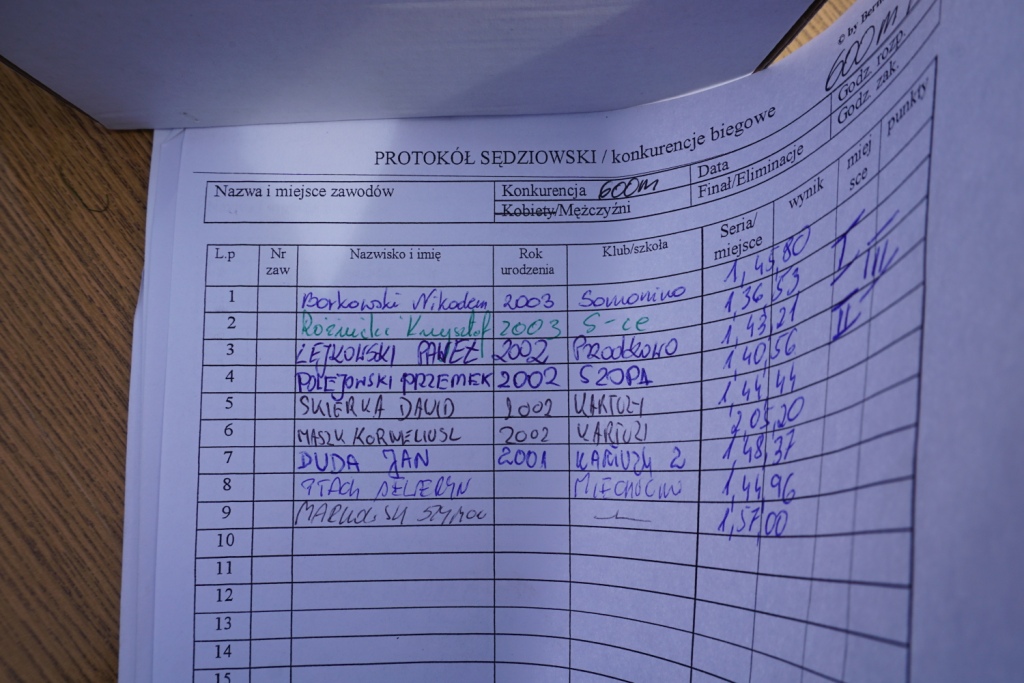 © by
600m
Godz. rozp.
Godz. zak.
PROTOKÓŁ SĘDZIOWSKI / konkurencje biegowe
Nazwa i miejsce zawodów Konkurencja 600m Data
Kobiety/Mężczyźni Finał/Eliminacje
L.p Nr zaw Nazwisko i imię Rok urodzenia Klub/szkoła Seria/ miejsce wynik miej sce punkty
1 Borkowski Nikodem 2003 Somonino 1,45,80
2 Krzysztof 2003 S-ce 1,36,53 I
3 ŁĘJKOWSKI PAWEŁ 2002 Przodkowo 1,43,21 III
4 POLEJOWSKI PRZEMEK 2002 SZOPA 1,40,56 II
5 SKIERKA DAVID 2002 KARTUZY 1,44,44
6 MASZK KORNELIUSZ 2002 KARTUZI 2,05,20
7 DUDA JAN 2001 KARTUZY 2 1,48,37
8 MIECHUCINO 1,44,96
9 — 1,57,00
10
11
12
13
14
15